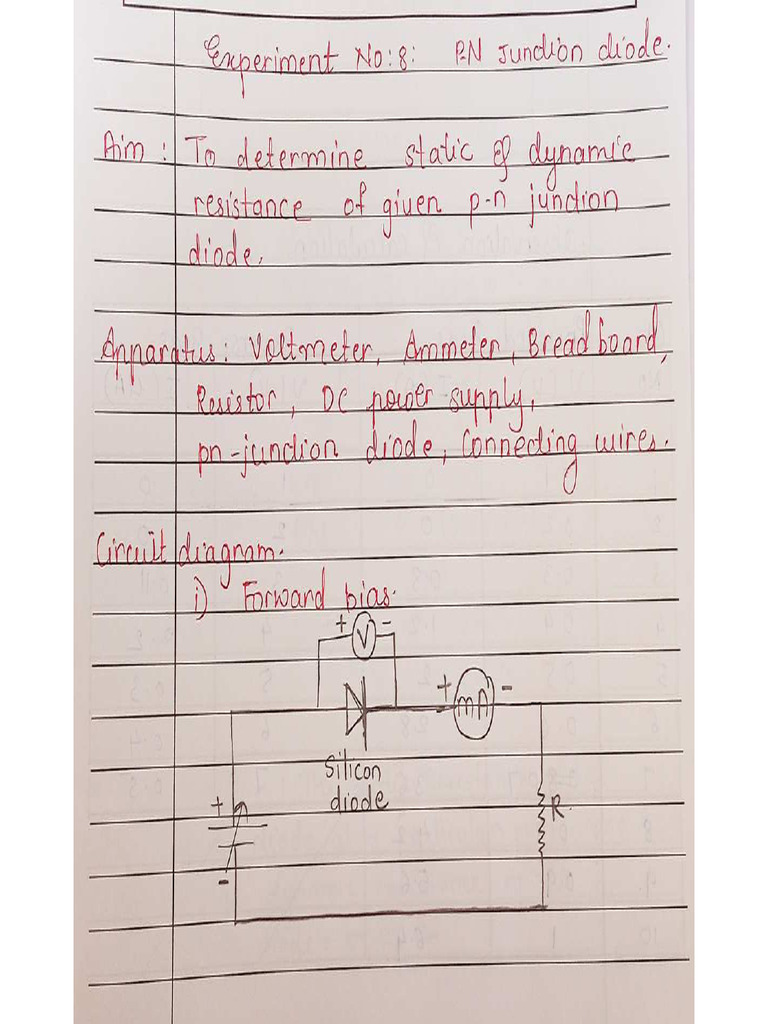 Experiment No:8: P-N Junction diode.
Aim : To determine static & dynamic
resistance of given p-n junction
diode.
Apparatus: Voltmeter, Ammeter, Bread board,
Resistor, DC power supply,
pn-junction diode, Connecting wires.
Circuit diagram.
i) Forward bias.
+ V -
+ mA -
Silicon
diode
+
R
-